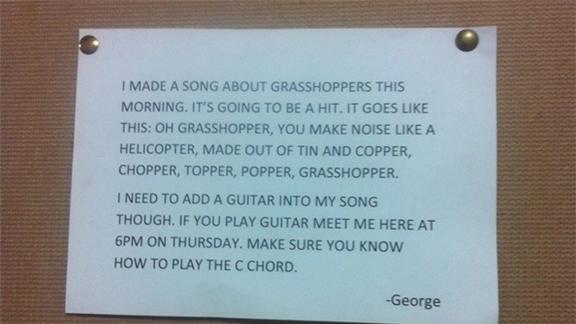 I MADE A SONG ABOUT GRASSHOPPERS THIS
MORNING. IT'S GOING TO BE A HIT. IT GOES LIKE
THIS: OH GRASSHOPPER, YOU MAKE NOISE LIKE A
HELICOPTER, MADE OUT OF TIN AND COPPER,
CHOPPER, TOPPER, POPPER, GRASSHOPPER.
I NEED TO ADD A GUITAR INTO MY SONG
THOUGH. IF YOU PLAY GUITAR MEET ME HERE AT
6PM ON THURSDAY. MAKE SURE YOU KNOW
HOW TO PLAY THE C CHORD.
-George